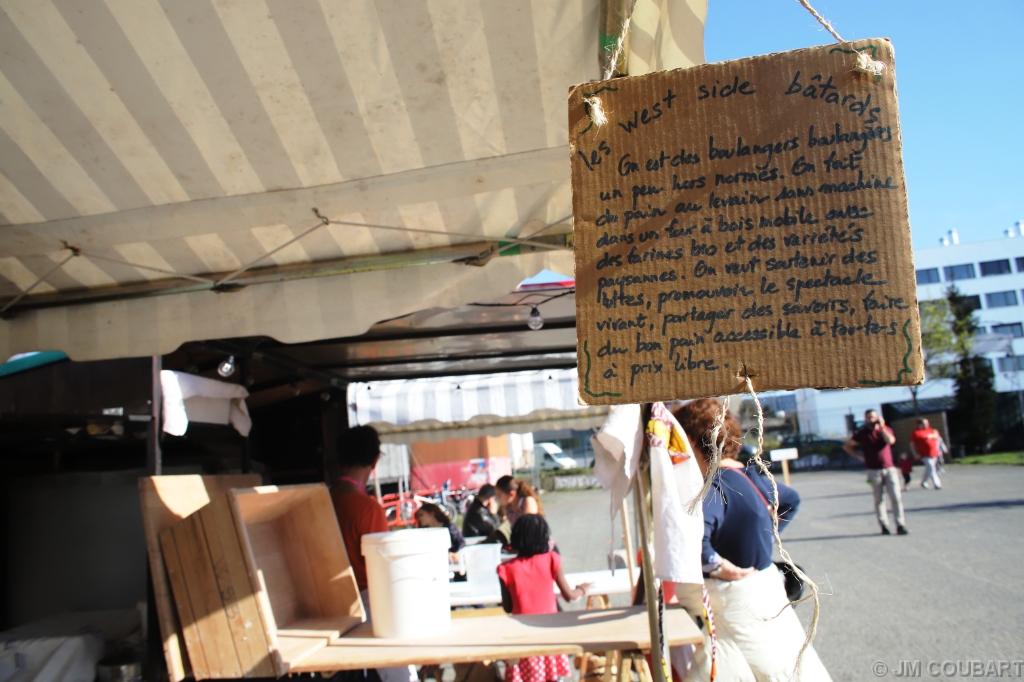 les west side bâtards
On est des boulangers boulangères
un peu hors normes. On fait
du pain au levain sans machine
dans un four à bois mobile avec
des farines bio et des variétés
paysannes. On veut soutenir des
luttes, promouvoir le spectacle
vivant, partager des savoirs, faire
du bon pain accessible à tou.te.s
à prix libre.
© JM COUBART